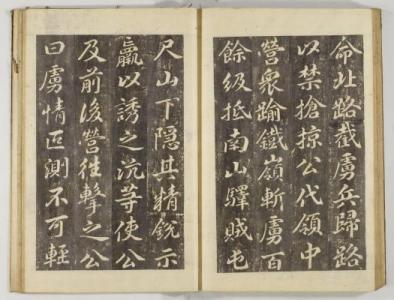 命北路截虜兵歸路
以禁搶掠公代領中
營衆踰鐵嶺斬虜百
餘級抵南山驛賊屯
尺山下隱其精銳示
羸以誘之沉等使公
及前後營往擊之公
曰虜情叵測不可輕